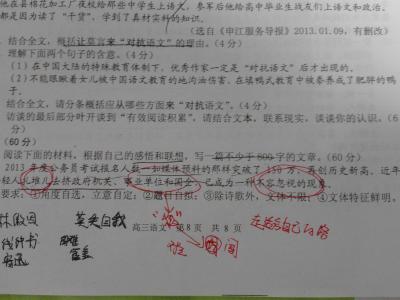 他在县棉花加工厂夜校给那些中学生上语文。参军后他给高中毕业生战友们上语文和政治。
都是因为读了“干货”,学到了真材实料的知识。
(选自《申江服务导报》2013.01.09,有删改)
结合全文,概括让莫言来“对抗语文”的理由。(4分)
理解下面两个句子的含意。(4分)
(1)在中国大陆的特殊教育体制下,优秀作家一定是“对抗语文”后才出现的。
(2)不能眼瞅着女儿被中国语文教育的地沟油伤害、在填鸭式教育中被豢养成了肥胖的鸭
子。
结合全文,请分条概括应从哪些方面来“对抗语文”。(4分)
访谈的最后部分叶开谈到“有效阅读积累”。请结合文本,联系现实,谈谈你的认识。(6
分)
(60分)
阅读下面的材料,根据自己的感悟和联想,写一篇不少于800字的文章。(60分)
2013年度公务员考试报名人数一如媒体预料的那样突破了150万,再创历史新高。近年
轻人扎堆儿去挤政府机关、事业单位和国企,已成为一种不容忽视的现象。
要求:①角度自选,立意自定;②题目自拟;③除诗歌外,文体不限;④文体特征鲜明。
高三语文 第8页 共8页